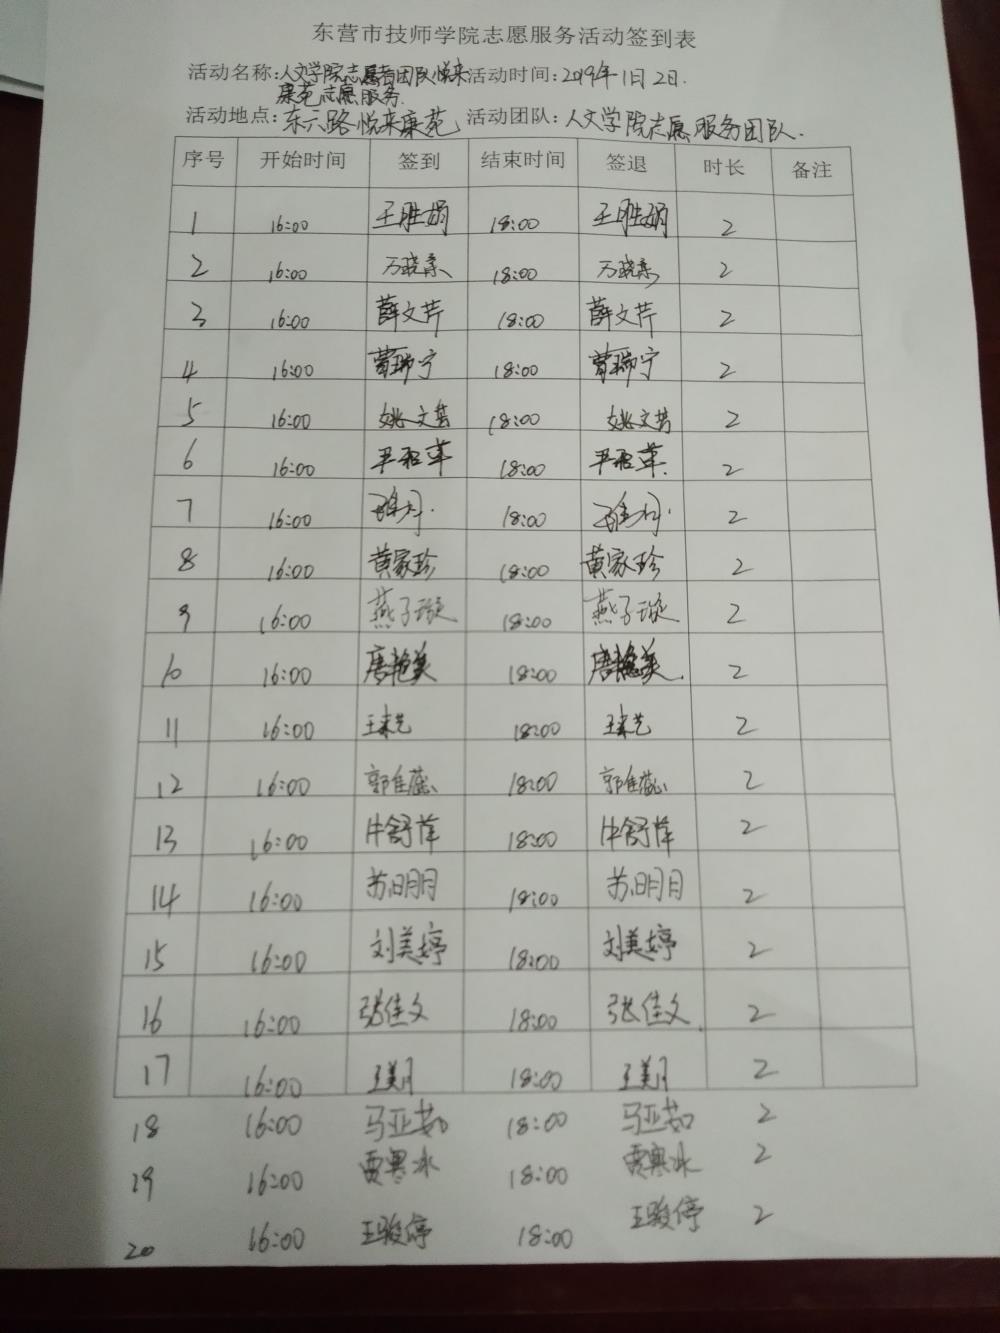 东营市技师学院志愿服务活动签到表
活动名称：人文学院志愿者团队悦来 活动时间：2019年1月2日.
康苑志愿服务.
活动地点：东六路悦来康苑 活动团队：人文学院志愿服务团队.
序号 开始时间 签到 结束时间 签退 时长 备注
1 16:00 王胜娟 18:00 王胜娟 2
2 16:00 万晓 18:00 万晓 2
3 16:00 薛文芹 18:00 薛文芹 2
4 16:00 曹瑞宁 18:00 曹瑞宁 2
5 16:00 姚文芳 18:00 姚文芳 2
6 16:00 18:00 2
7 16:00 18:00 2
8 16:00 黄家珍 18:00 黄家珍 2
9 16:00 燕子璇 18:00 燕子璇 2
10 16:00 唐艳美 18:00 唐艳美. 2
11 16:00 王来艺 18:00 王来艺 2
12 16:00 郭佳蕊 18:00 郭佳蕊 2
13 16:00 牛舒萍 18:00 牛舒萍 2
14 16:00 苏明月 18:00 苏明月 2
15 16:00 刘美婷 18:00 刘美婷 2
16 16:00 张佳文 18:00 张佳文. 2
17 16:00 王美月 18:00 王美月 2
18 16:00 马亚茹 18:00 马亚茹 2
19 16:00 贾寒冰 18:00 贾寒冰 2
20 16:00 王骏停 18:00 王骏停 2